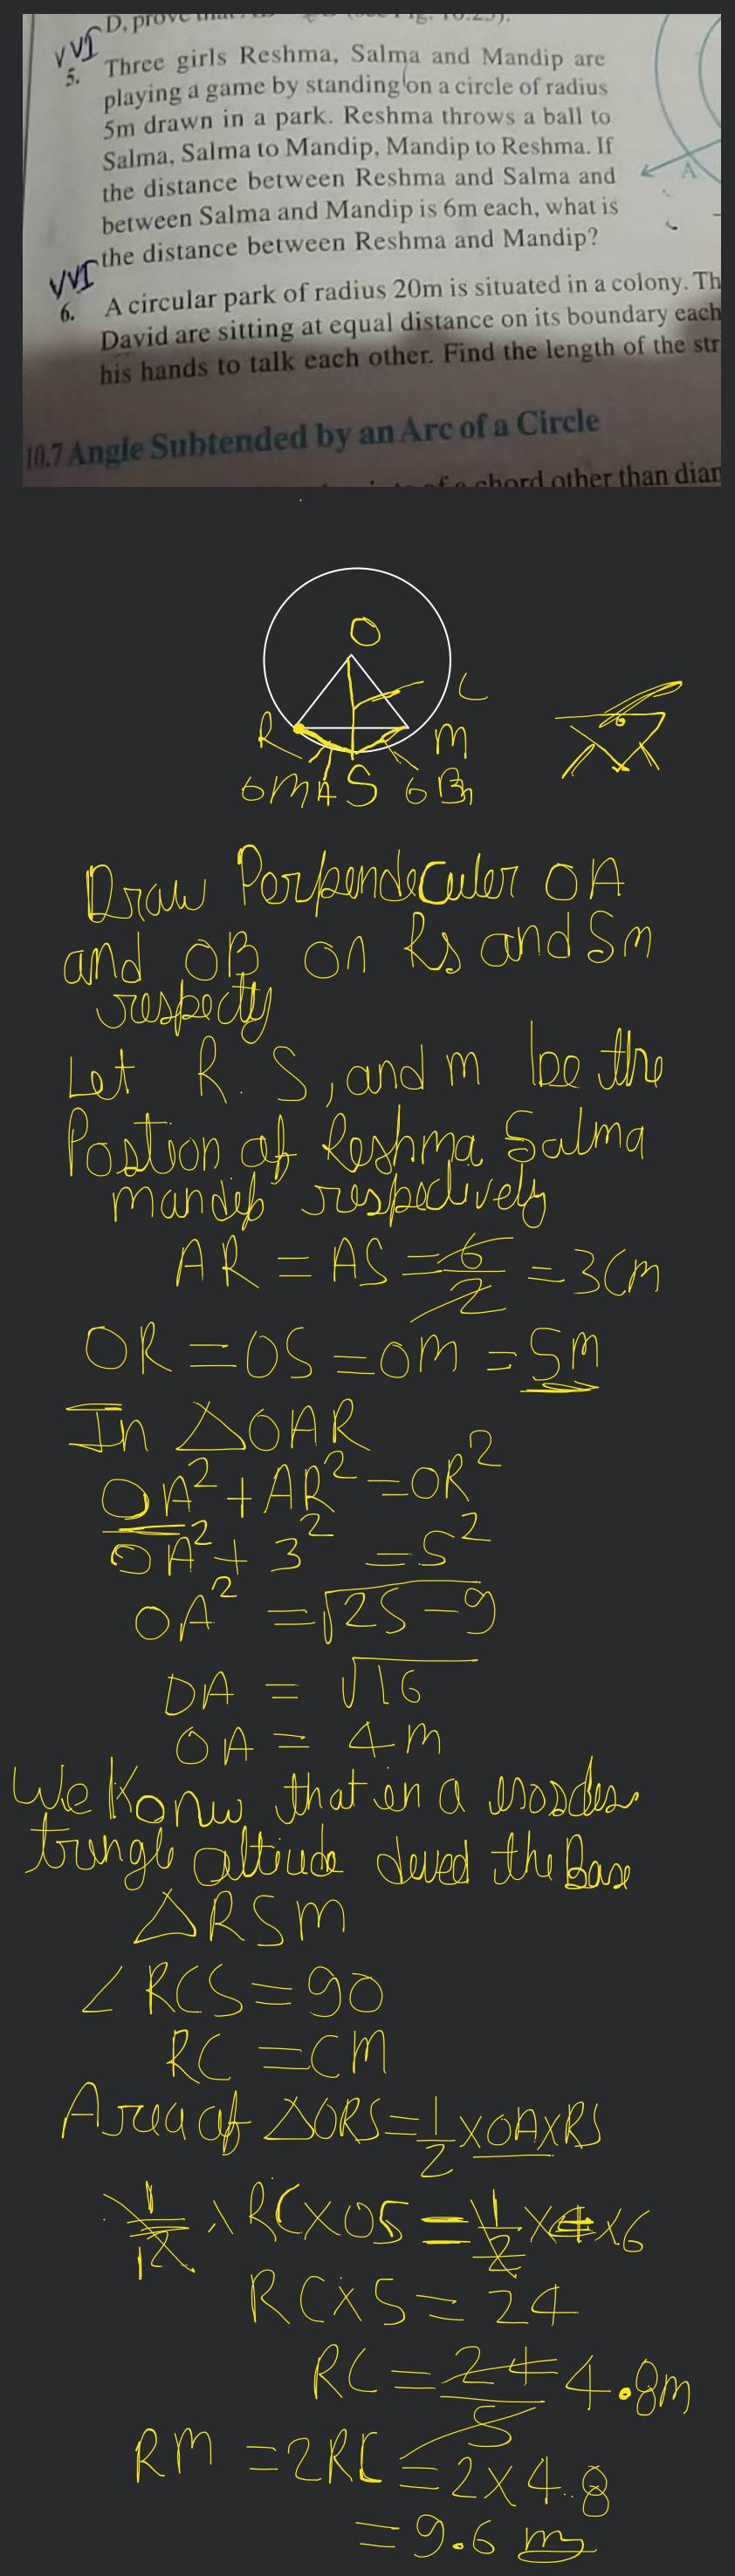 D, prove that
VVI
5. Three girls Reshma, Salma and Mandip are
playing a game by standing on a circle of radius
5m drawn in a park. Reshma throws a ball to
Salma, Salma to Mandip, Mandip to Reshma. If
the distance between Reshma and Salma and
between Salma and Mandip is 6m each, what is
the distance between Reshma and Mandip?
VVI
6. A circular park of radius 20m is situated in a colony. Th
David are sitting at equal distance on its boundary each
his hands to talk each other. Find the length of the str
10.7 Angle Subtended by an Arc of a Circle
chord other than diam
A
O
C
R
M
6m A S 6 B
Draw Perpendeculer OA
and OB on RS and SM
respectly
Let R. S, and m be the
Postion of Reshma Salma
mandip respectively
AR = AS = 6/2 = 3cm
OR = OS = OM = 5m
In △OAR
OA² + AR² = OR²
OA² + 3² = 5²
OA² = √25-9
OA = √16
OA = 4m
We Konw that in a
trungle altiude deved the Base
△RSM
∠RCS = 90
RC = CM
Area of △ORS = 1/2 × OA × RS
1/2 × RC × OS = 1/2 × 4 × 6
RC × 5 = 24
RC = 24/5 4.8m
RM = 2RC = 2 × 4.8
= 9.6 m